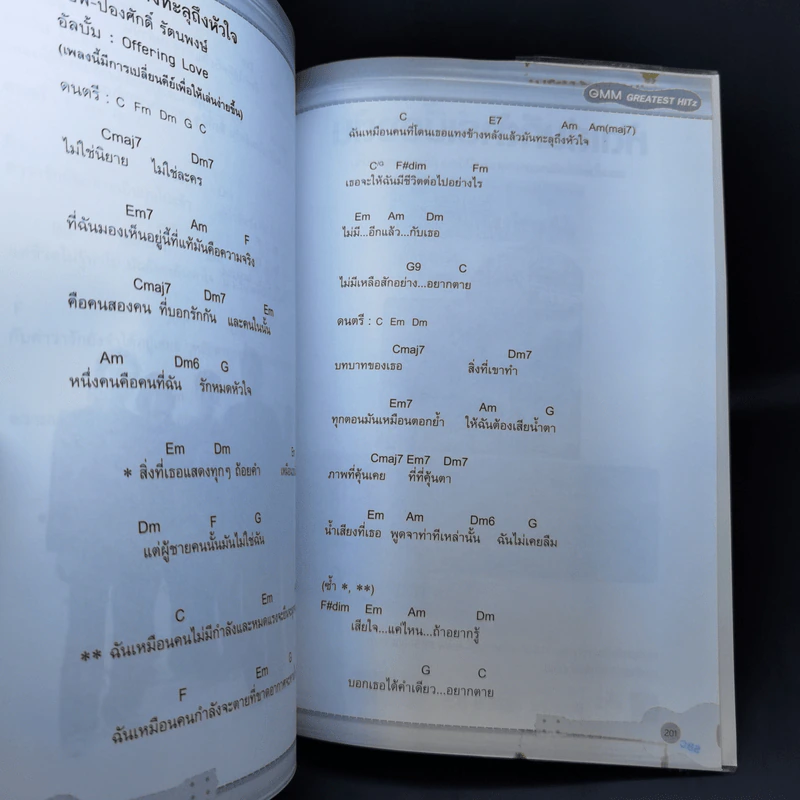 งทะลุถึงหัวใจ
-ปองศักดิ์ รัตนพงษ์
อัลบั้ม : Offering Love
(เพลงนี้มีการเปลี่ยนคีย์เพื่อให้เล่นง่ายขึ้น)
ดนตรี : C Fm Dm G C
Cmaj7 Dm7
ไม่ใช่นิยาย ไม่ใช่ละคร
Em7 Am F
ที่ฉันมองเห็นอยู่นี้ที่แท้มันคือความจริง
Cmaj7 Dm7 Em
คือคนสองคน ที่บอกรักกัน และคนในนั้น
Am Dm6 G
หนึ่งคนคือคนที่ฉัน รักหมดหัวใจ
Em Dm
* สิ่งที่เธอแสดงทุกๆ ถ้อยคำ
Dm F G
แต่ผู้ชายคนนั้นมันไม่ใช่ฉัน
C Em
** ฉันเหมือนคนไม่มีกำลังและหมดแรง
F Em G
ฉันเหมือนคนกำลังจะตายที่ขาดอากาศ
GMM GREATEST HITz
C E7 Am Am(maj7)
ฉันเหมือนคนที่โดนเธอแทงข้างหลังแล้วมันทะลุถึงหัวใจ
C° F#dim Fm
เธอจะให้ฉันมีชีวิตต่อไปอย่างไร
Em Am Dm
ไม่มี...อีกแล้ว...กับเธอ
G9 C
ไม่มีเหลือสักอย่าง...อยากตาย
ดนตรี : C Em Dm
Cmaj7 Dm7
บทบาทของเธอ สิ่งที่เขาทำ
Em7 Am G
ทุกตอนมันเหมือนตอกย้ำ ให้ฉันต้องเสียน้ำตา
Cmaj7 Em7 Dm7
ภาพที่คุ้นเคย ที่ที่คุ้นตา
Em Am Dm6 G
น้ำเสียงที่เธอ พูดจาท่าทีเหล่านั้น ฉันไม่เคยลืม
(ซ้ำ *, **)
F#dim Em Am Dm
เสียใจ...แค่ไหน...ถ้าอยากรู้
G C
บอกเธอได้คำเดียว...อยากตาย
201